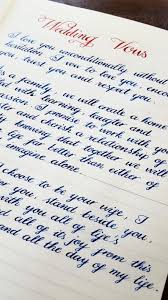 Wedding Vows
I love you unconditionally without
hesitation. I vow to love you, encou
you, trust you and respect you.
As a family, we will create a home
led with learning, laughter and
sion. I promise to work with
nd cherish a relationship with
owing that together we
ild a life far better than either of
imagine alone.
choose to be your wife, I
with you, stand beside you,
all of life's
nd all of its joy from this
and all the day of my life.